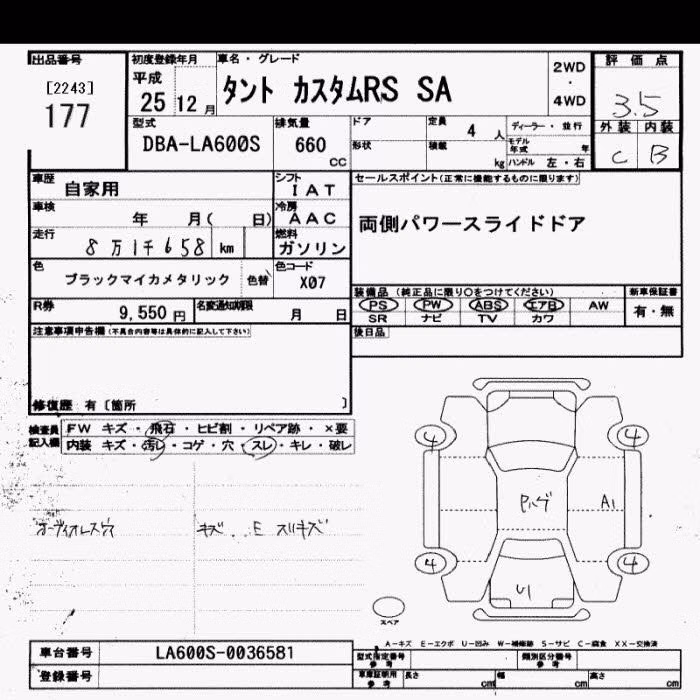 出品番号
[2243]
177
初度登録年月
平成
25 12 月
車名・グレード
タント カスタムRS SA
2WD
・
4WD
評価点
3.5
外装 内装
C B
型式
DBA-LA600S
排気量
660
cc
ドア
形状
定員
4 人
積載
kg
ディーラー・並行
モデル
年式 年
ハンドル 左・右
車歴
自家用
シフト
IAT
セールスポイント(正常に機能するものに限ります)
両側パワースライドドア
車検
年 月( 日)
冷房
AAC
走行
8万1千658 km
燃料
ガソリン
色
ブラックマイカメタリック
色替
色コード
X07
装備品 (純正品に限り○をつけてください)
PS PW ABS エアB AW
SR ナビ TV カワ
新車保証書
有・無
R券
9,550 円
名変通知期限
月 日
後日品
注意事項申告欄(不具合内容等は具体的に記入して下さい)
修復歴 有〔箇所 〕
検査員
記入欄
FW キズ・飛石・ヒビ割・リペア跡・×要
内装 キズ・汚レ・コゲ・穴・スレ・キレ・破レ
オーディオレス穴
キズ
E スリキズ
4 4
ハゲ A1
4 4
U1
スペア
A－キズ E－エクボ U－凹み W－補修跡 S－サビ C－腐食 XX－交換済
車台番号
LA600S-0036581
登録番号
型式指定番号
参考
類別区分番号
参考
車庫証明用
参考
長さ cm
幅 cm
高さ cm